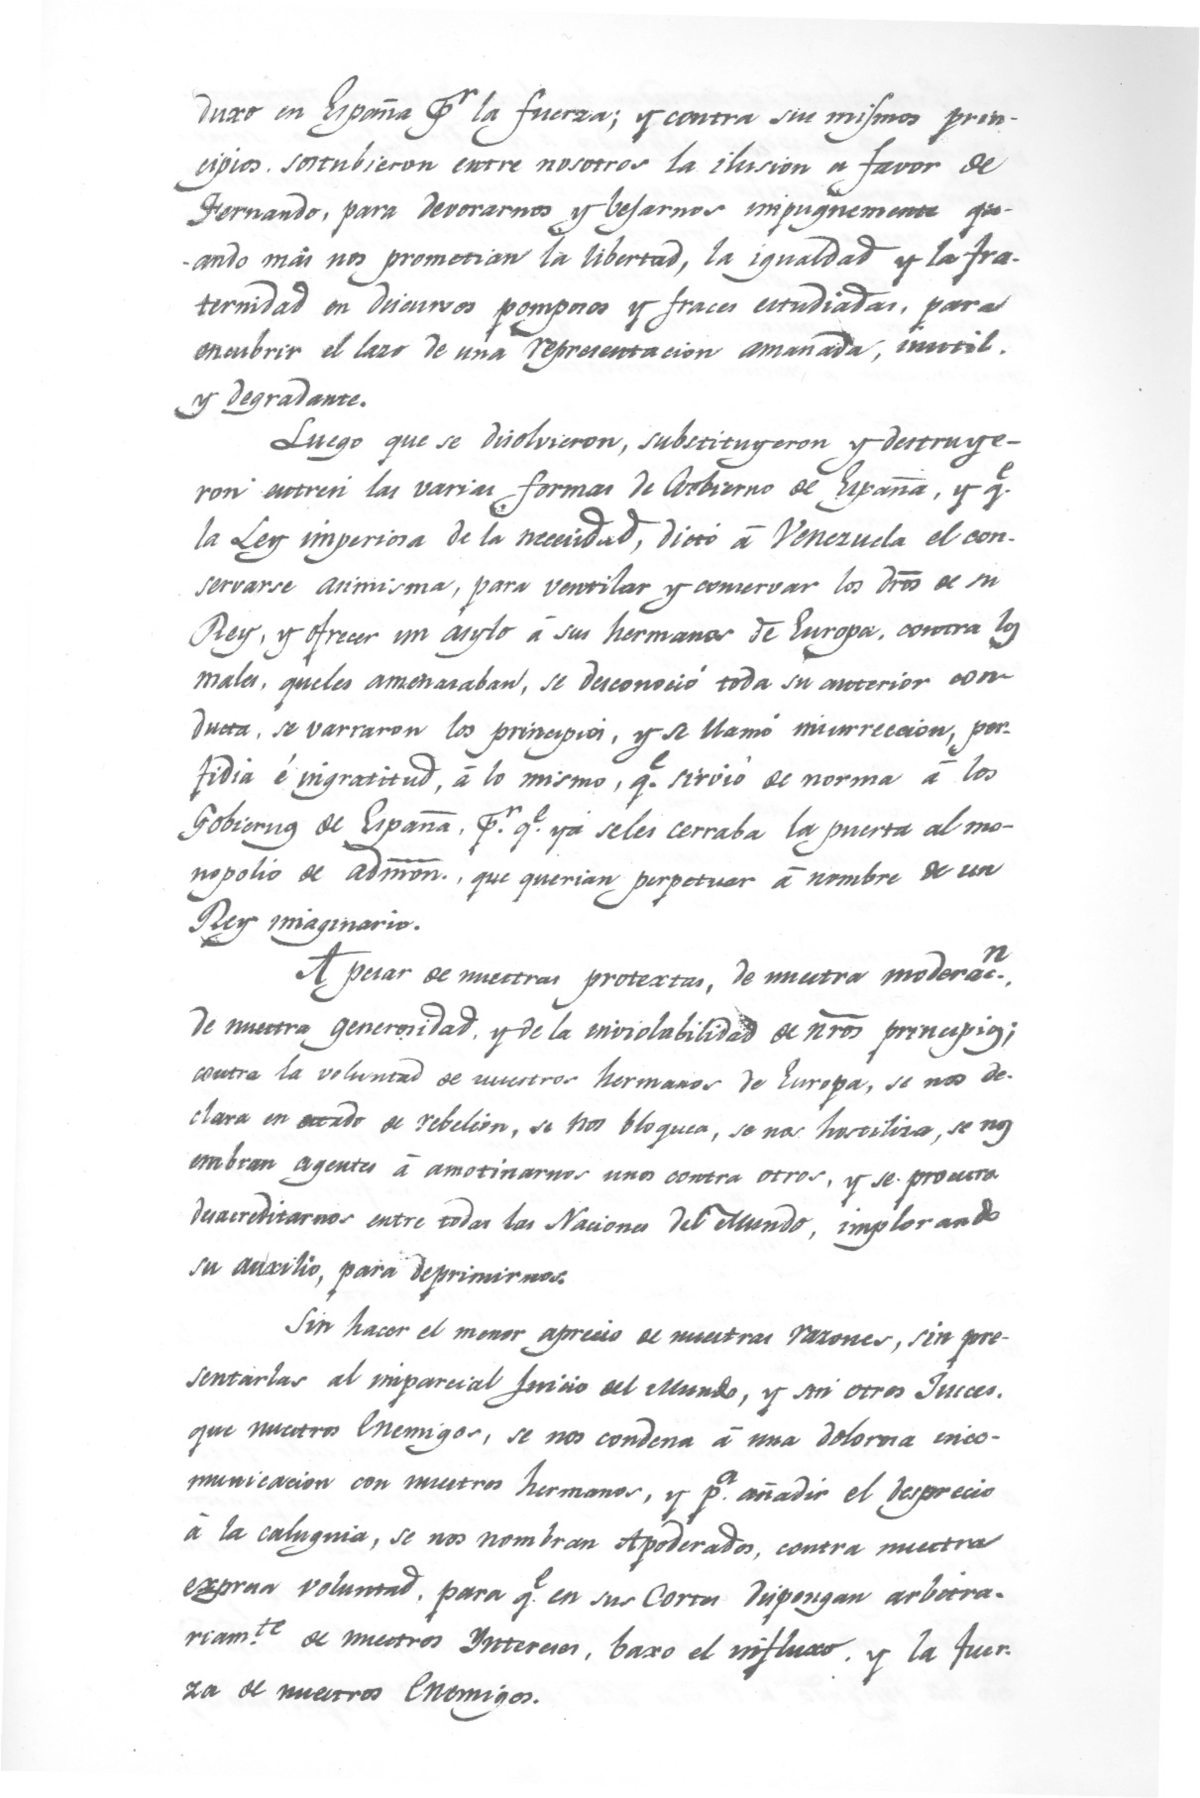 duxo en España pr. la fuerza; y contra sus mismos prin-
cipios. sostubieron entre nosotros la ilusion a favor de
Fernando, para devorarnos y besarnos impugnemente qu-
-ando más nos prometian la libertad, la igualdad y la fra-
ternidad en discursos pomposos y fraces estudiadas, para
encubrir el lazo de una representacion amañada, inutil.
y degradante.
Luego que se disolvieron, substituyeron y destruye-
ron entresi las varias formas de Gobierno de España, y qe.
la Ley imperiosa de la necesidad, dictó â Venezuela el con-
servarse asimisma, para ventilar y conservar los dros de su
Rey, y ofrecer un asylo â sus hermanos de Europa. contra los
males, queles amenasaban, se desconoció toda su anterior con-
ducta, se varraron los principios, y se llamó insurreccion, per-
fidia é ingratitud, â lo mismo, qe. sirvió de norma â los
Gobiernos de España, pr. qe. ya seles cerraba la puerta al mo-
nopolio de admon., que querian perpetuar â nombre de un
Rey imaginario.
A pesar de nuestras protextas, de nuestra moderacn.,
de nuestra generosidad, y de la inviolabilidad de nros principios;
contra la voluntad de nuestros hermanos de Europa, se nos de-
clara en estado de rebelión, se nos bloquea, se nos hostiliza, se nos
embian agentes â amotinarnos unos contra otros, y se procura
desacreditarnos entre todas las Naciones del Mundo, implorando
su auxilio, para deprimirnos.
Sin hacer el menor aprecio de nuestras razones, sin pre-
sentarlas al imparcial Juicio del Mundo, y sin otros Jueces.
que nuestros Enemigos, se nos condena â una dolorosa inco-
municacion con nuestros hermanos, y pa. añadir el desprecio
â la calugnia, se nos nombran Apoderados, contra nuestra
expresa voluntad, para qe. en sus Cortes dispongan arbitra-
riamte. de nuestros Intereses, baxo el influxo. y la fuer-
za de nuestros Enemigos.